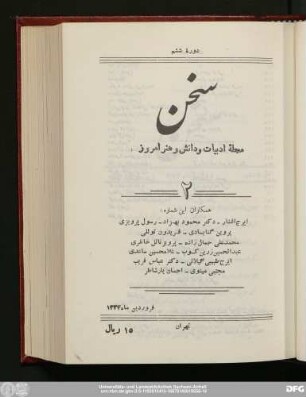 دورهٔ ششم
سخن
مجلهٔ ادبیات و دانش و هنر امروز
۲
همکاران این شماره:
ایرج افشار - دکتر محمود بهزاد - رسول پرویزی
پروین گنابادی - فریدون توللی
محمدعلی جمال‌زاده - پرویز ناتل خانلری
عبدالحسین زرین‌کوب - غلامحسین ساعدی
ایرج طبیبی گیلانی - دکتر عباس قریب
مجتبی مینوی - احسان یارشاطر
فروردین ماه ۱۳۳۴
تهران
۱۵ ریال
Universitäts- und Landesbibliothek Sachsen-Anhalt